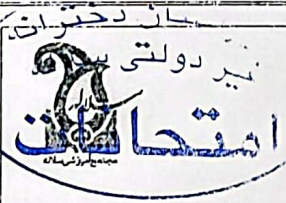 دخترانه
غیر دولتی
امتحانات
مجتمع آموزشی سلاله